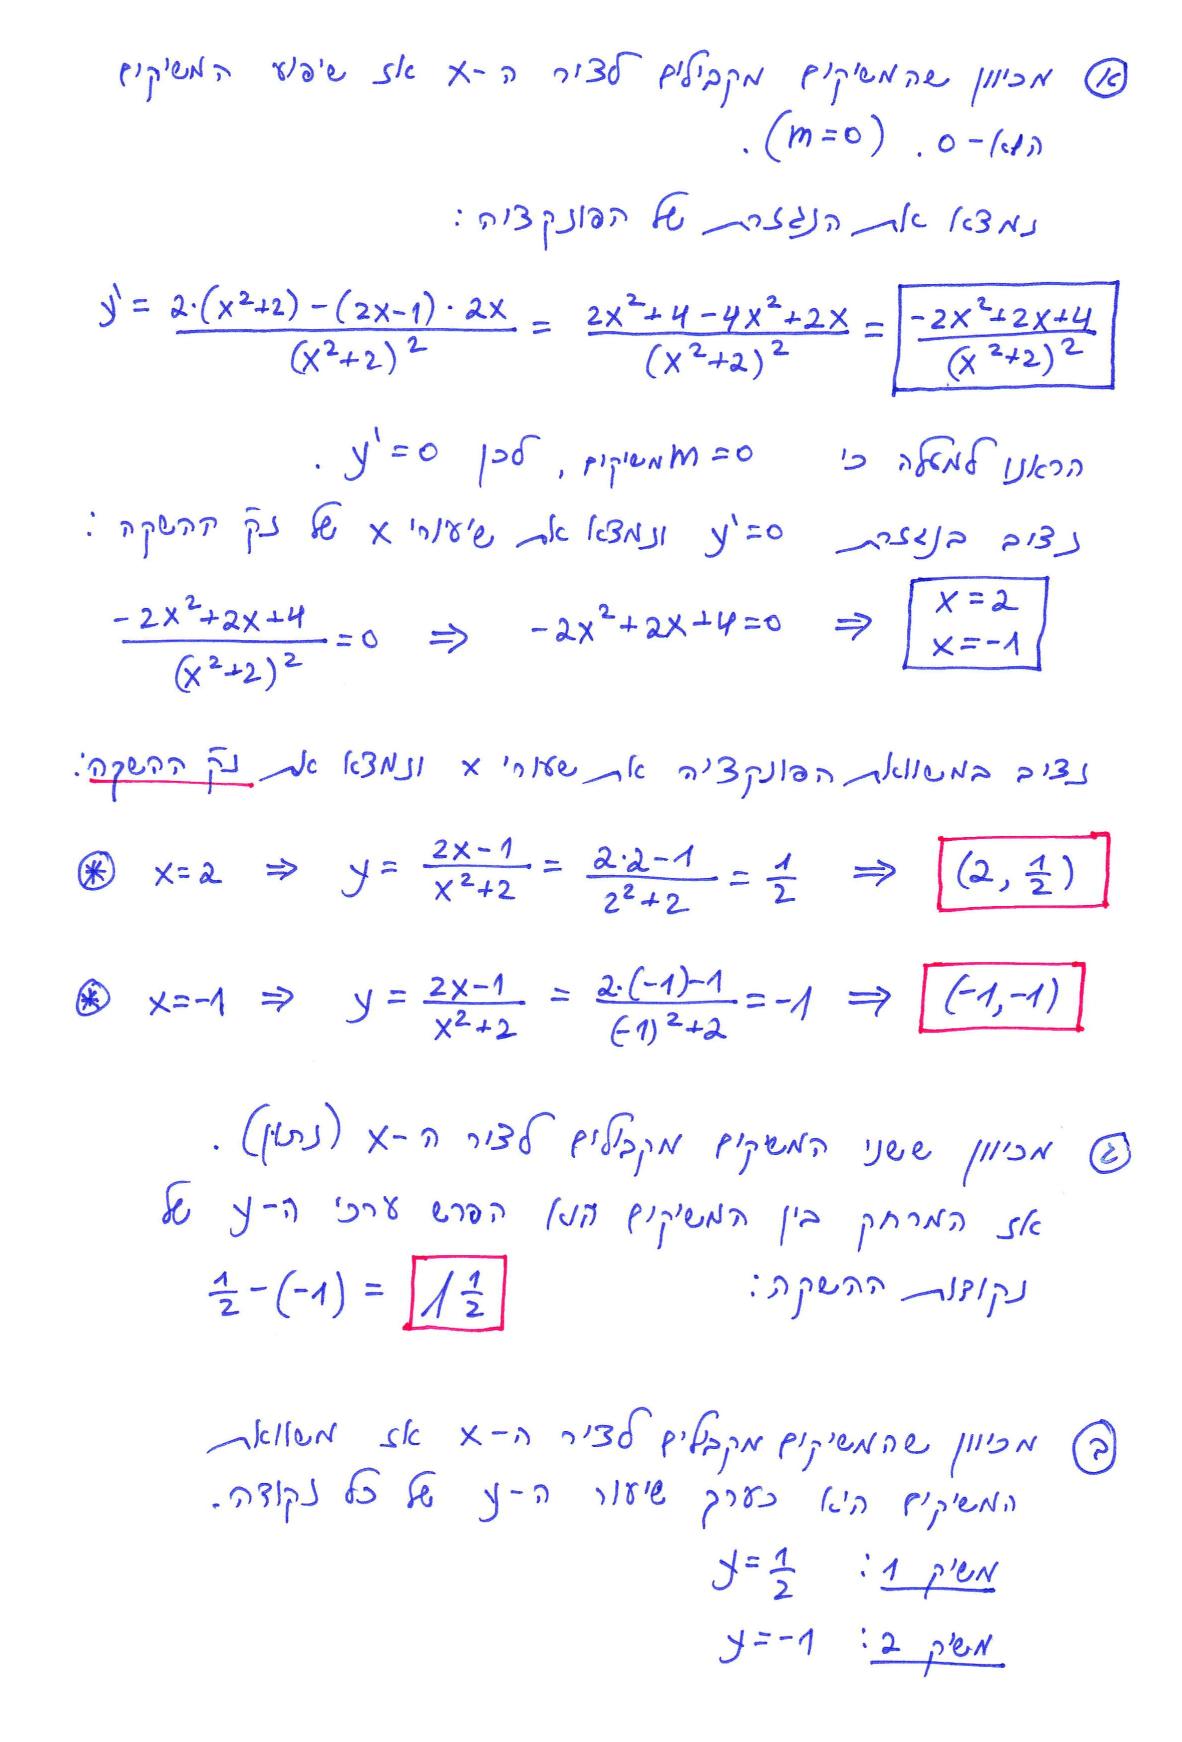 א מכיוון שהמשיקים מקבילים לציר ה-x אז שיפוע המשיקים
הוא-0. (m=0).
נמצא את הנגזרת של הפונקציה:
y' = \frac{2·(x²+2)-(2x-1)·2x}{(x²+2)²} = \frac{2x²+4-4x²+2x}{(x²+2)²} = \frac{-2x²+2x+4}{(x²+2)²}
הראנו למעלה כי m=0 משיקים, לכן y'=0.
נציב בנגזרת y'=0 ונמצא את שיעורי x של נק' ההשקה:
\frac{-2x²+2x+4}{(x²+2)²}=0 ⇒ -2x²+2x+4=0 ⇒ x=2
x=-1
נציב במשוואת הפונקציה את שעורי x ונמצא את נק' ההשקה:
* x=2 ⇒ y = \frac{2x-1}{x²+2} = \frac{2·2-1}{2²+2} = \frac{1}{2} ⇒ (2, \frac{1}{2})
* x=-1 ⇒ y = \frac{2x-1}{x²+2} = \frac{2·(-1)-1}{(-1)²+2} = -1 ⇒ (-1,-1)
ג מכיוון ששני המשקים מקבילים לציר ה-x (נתון).
אז המרחק בין המשיקים הוא הפרש ערכי ה-y של
נקודות ההשקה: \frac{1}{2}-(-1) = 1\frac{1}{2}
ב מכיוון שהמשיקים מקבילים לציר ה-x אז משוואת
המשיקים היא כערך שיעור ה-y של כל נקודה.
משיק 1: y=\frac{1}{2}
משיק 2: y=-1